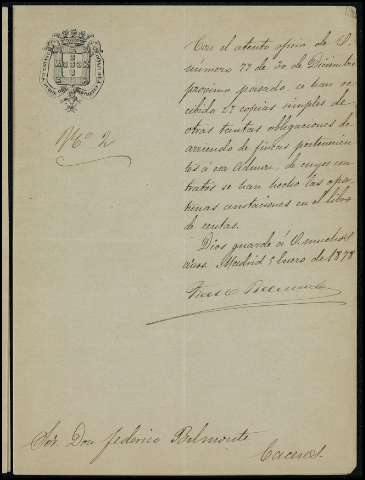 Nº 2
Con el atento oficio de V.
número 77 de 30 de Diciembre
proximo pasado, se han re-
cibido 27 copias simples de
otras tantas obligaciones de
arriendo de fincas pertenecien-
tes á esa Admon. de cuyos con-
tratos se han hecho las opor-
tunas anotaciones en el libro
de rentas.
Dios guarde á V. muchos
años. Madrid 5 Enero de 1878
Sor. Don Federico Belmonte
Caceres.